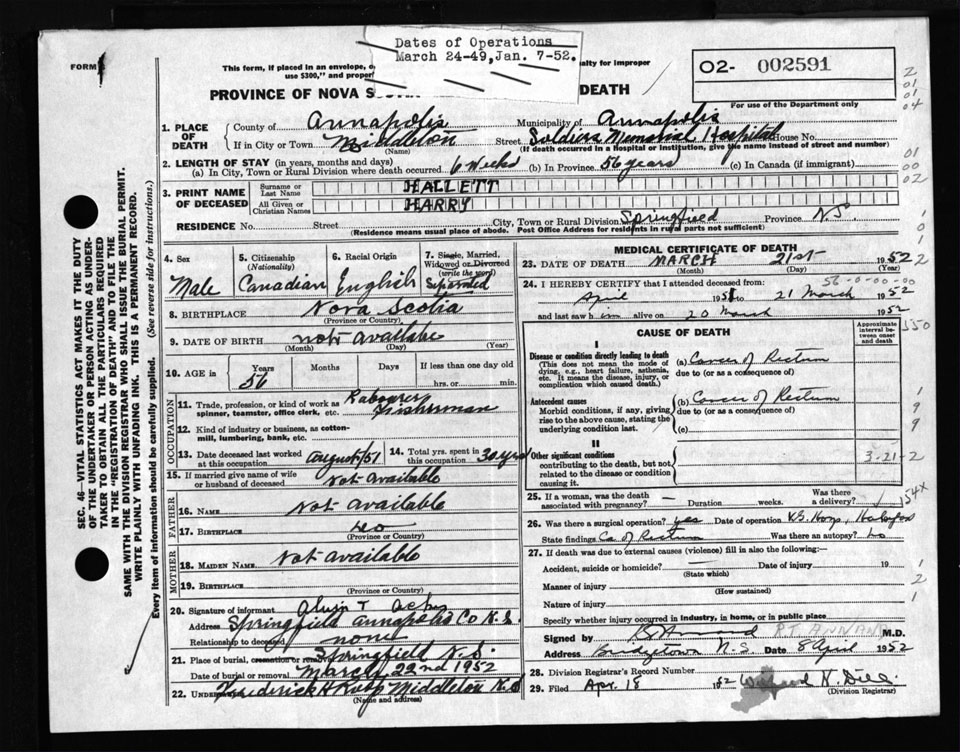 Dates of Operations
March 24-49, Jan. 7-52.
FORM
This form, if placed in an envelope, o
nalty for improper
use $300," and proper
PROVINCE OF NOVA S
DEATH
O2- 002591
For use of the Department only
2
01
01
04
1. PLACE OF DEATH
County of Annapolis Municipality of Annapolis
If in City or Town Middleton Street Soldiers Memorial Hospital House No.
(Name) (If death occurred in a Hospital or Institution, give the name instead of street and number)
2. LENGTH OF STAY (in years, months and days)
(a) In City, Town or Rural Division where death occurred 6 weeks (b) In Province 56 years (c) In Canada (if immigrant)
01
00
02
3. PRINT NAME OF DECEASED
Surname or Last Name HALLETT
All Given or Christian Names HARRY
RESIDENCE No. Street City, Town or Rural Division Springfield Province N.S.
(Residence means usual place of abode. Post Office Address for residents in rural parts not sufficient)
4. Sex Male
5. Citizenship (Nationality) Canadian
6. Racial Origin English
7. Single, Married, Widowed or Divorced (write the word) Seperated
8. BIRTHPLACE Nova Scotia
(Province or Country)
9. DATE OF BIRTH not available
(Month) (Day) (Year)
10. AGE in Years 56 Months Days If less than one day old
hrs. or min.
OCCUPATION
11. Trade, profession, or kind of work as spinner, teamster, office clerk, etc. Labourer
Fisherman
12. Kind of industry or business, as cotton-mill, lumbering, bank, etc.
13. Date deceased last worked at this occupation August/51
14. Total yrs. spent in this occupation 30 yrs
15. If married give name of wife or husband of deceased Not Available
FATHER
16. NAME Not Available
17. BIRTHPLACE do
(Province or Country)
MOTHER
18. MAIDEN NAME Not available
19. BIRTHPLACE
(Province or Country)
20. Signature of informant
Address Springfield Annapolis Co N.S.
Relationship to deceased none
21. Place of burial, cremation or removal Springfield N.S.
Date of burial or removal March 22nd 1952
22. Undertaker Frederick H Middleton N.S
(Name and address)
MEDICAL CERTIFICATE OF DEATH
23. DATE OF DEATH MARCH 21st 1952
(Month) (Day) (Year)
56-0-00-00-00
24. I HEREBY CERTIFY that I attended deceased from:
April 1951 to 21 March 1952
and last saw him alive on 20 March 1952
CAUSE OF DEATH
Approximate interval between onset and death
I
Disease or condition directly leading to death (This does not mean the mode of dying, e.g., heart failure, asthenia, etc. It means the disease, injury, or complication which caused death.)
(a) Cancer of Rectum
due to (or as a consequence of)
Antecedent causes
Morbid conditions, if any, giving rise to the above cause, stating the underlying condition last.
(b) Cancer of Rectum
due to (or as a consequence of)
(c)
II
Other significant conditions contributing to the death, but not related to the disease or condition causing it.
3-21-2
25. If a woman, was the death associated with pregnancy? Duration weeks. Was there a delivery?
154x
26. Was there a surgical operation? yes Date of operation V.G. Hosp, Halifax
State findings Ca of Rectum Was there an autopsy? no
27. If death was due to external causes (violence) fill in also the following:—
Accident, suicide or homicide? Date of injury 19
(State which)
Manner of injury
(How sustained)
Nature of injury
Specify whether injury occurred in industry, in home, or in public place
Signed by M.D.
Address Bridgetown N.S. Date 8 April 1952
28. Division Registrar's Record Number
29. Filed Apr. 18 1952
(Division Registrar)
SEC. 46—VITAL STATISTICS ACT MAKES IT THE DUTY OF THE UNDERTAKER OR PERSON ACTING AS UNDERTAKER TO OBTAIN ALL THE PARTICULARS REQUIRED IN THE "REGISTRATION OF DEATH" AND TO FILE THE SAME WITH THE DIVISION REGISTRAR WHO SHALL ISSUE THE BURIAL PERMIT.
WRITE PLAINLY WITH UNFADING INK. THIS IS A PERMANENT RECORD.
Every item of information should be carefully supplied. (See reverse side for instructions.)